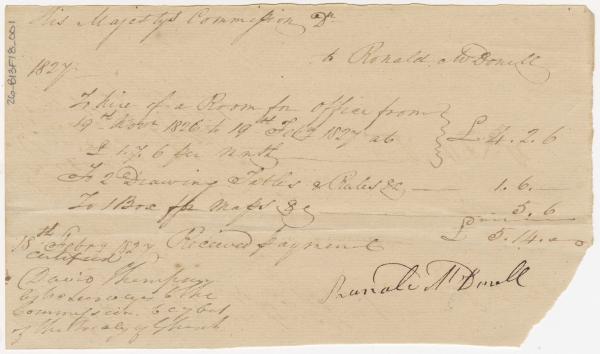 His Majestys Commission Dr
to Ronald McDonell
1827
To hire of a Room for office from
19th Novr 1826 to 19th Feby 1827 at
£1.7.6 per mnth
£4.2.6
To 2 Drawing Tables & Rules &c — 1.6.—
To 1 Box for Maps &c — 5.6
£5.14.0
18th Feby 1827 Received payment
certified
David Thompson
Ranald McDonell
of the Treaty of Ghent
26-B13F18.001